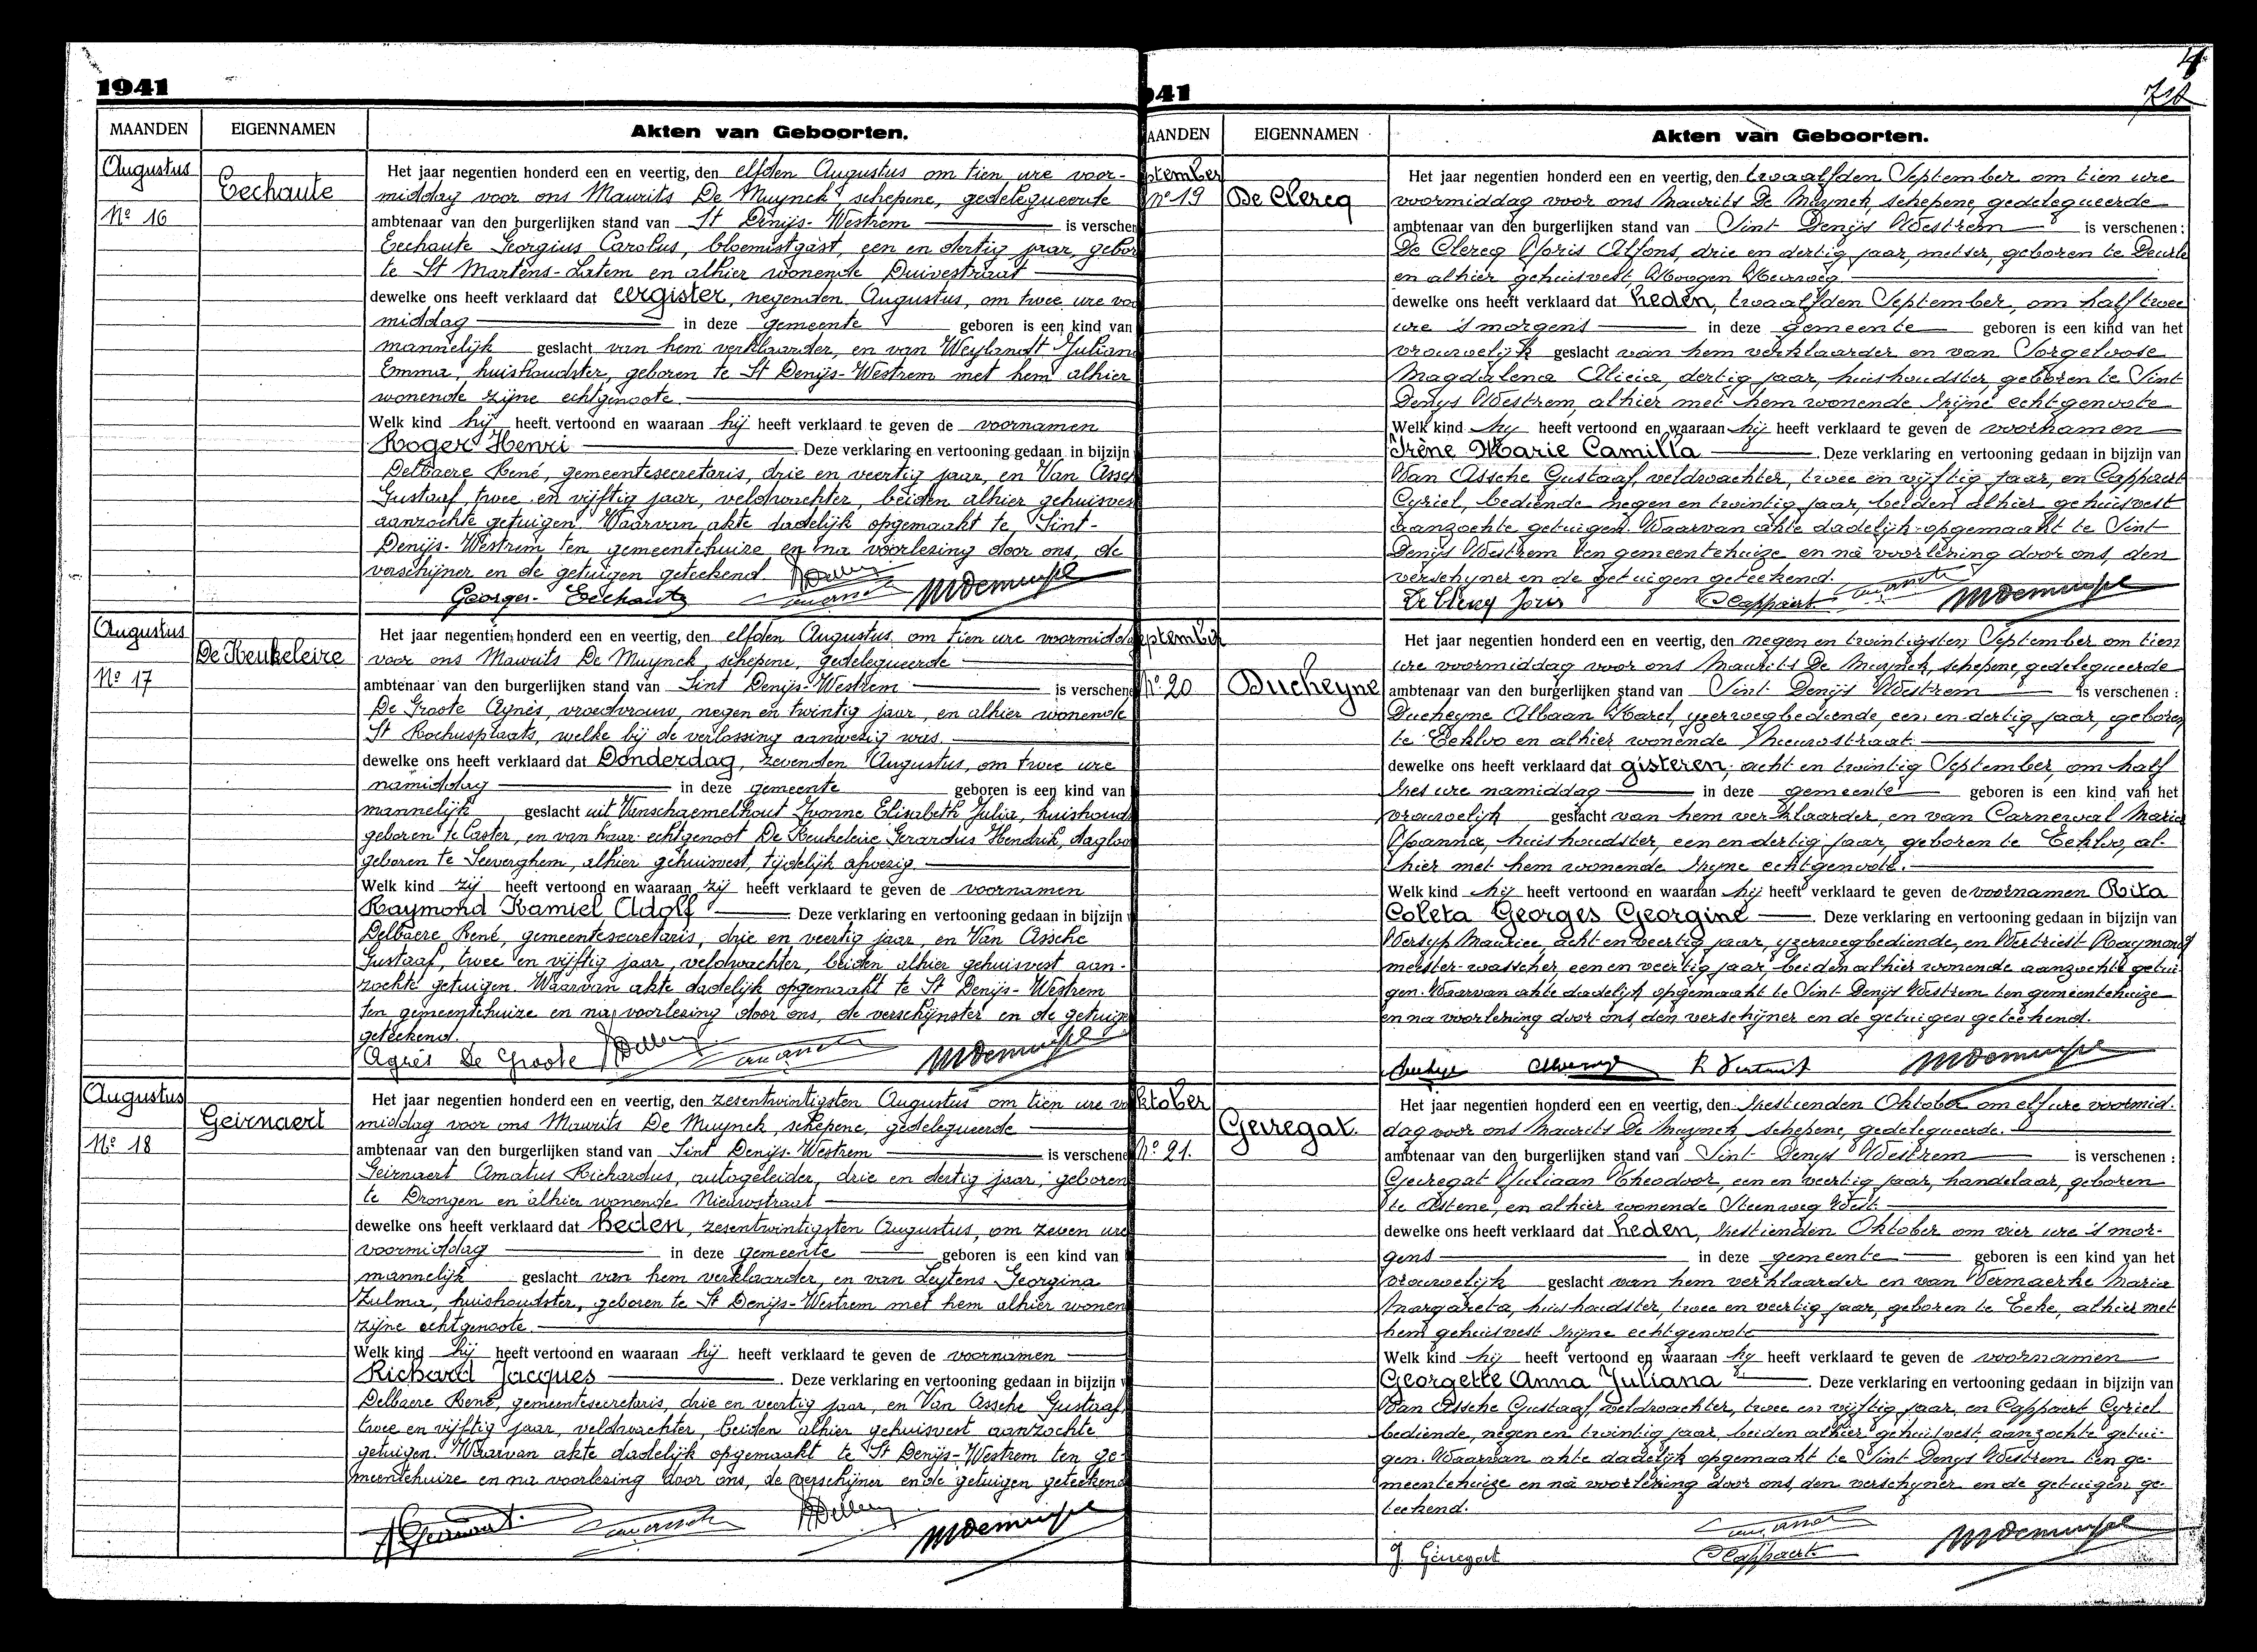 1941
MAANDEN
EIGENNAMEN
Akten van Geboorten.
Augustus
Eechaute
Nº 16
Het jaar negentien honderd een en veertig, den elfden Augustus om tien ure voor-
middag voor ons Maurits De Muynck, schepene, gedelegueerde
ambtenaar van den burgerlijken stand van St Denijs-Westrem is verschen
Eechaute Georgius Carolus, bloemistgast, een en dertig jaar, gebor
te St Martens-Latem en alhier wonende Duivestraat
dewelke ons heeft verklaard dat eergister, negenden Augustus, om twee ure voo
middag in deze gemeente geboren is een kind van
mannelijk geslacht van hem verklaarder, en van Weylandt Julian
Emma, huishoudster, geboren te St Denijs-Westrem met hem alhier
wonende zijne echtgenoote.
Welk kind hij heeft vertoond en waaraan hij heeft verklaard te geven de voornamen
Roger Henri Deze verklaring en vertooning gedaan in bijzijn
Delbaere René, gemeentesecretaris, drie en veertig jaar, en Van Assch
Gustaaf, twee en vijftig jaar, veldwachter, beiden alhier gehuisves
aanzochte getuigen. Waarvan akte dadelijk opgemaakt te Sint-
Denijs-Westrem ten gemeentehuize en na voorlezing door ons, de
verschijner en de getuigen geteekend.
Georges Eechaute
Augustus
De Keukeleire
Nº 17
Het jaar negentien honderd een en veertig, den elfden Augustus om tien ure voormidda
voor ons Maurits De Muynck, schepene, gedelegueerde
ambtenaar van den burgerlijken stand van Sint Denijs-Westrem is verschene
De Groote Agnès, vroedvrouw, negen en twintig jaar, en alhier wonende
St Rochusplaats, welke bij de verlossing aanwezig was.
dewelke ons heeft verklaard dat Donderdag, zevenden Augustus, om twee ure
namiddag in deze gemeente geboren is een kind van
mannelijk geslacht uit Vanschaemelhout Yvonne Elisabeth Julia, huishoud
geboren te Caster, en van haar echtgenoot De Keukeleire Gerardus Hendrik, dagloo
geboren te Seeverghem, alhier gehuisvest, tijdelijk afwezig.
Welk kind zij heeft vertoond en waaraan zij heeft verklaard te geven de voornamen
Raymond Kamiel Adolf Deze verklaring en vertooning gedaan in bijzijn
Delbaere René, gemeentesecretaris, drie en veertig jaar, en Van Assche
Gustaaf, twee en vijftig jaar, veldwachter, beiden alhier gehuisvest aan-
zochte getuigen. Waarvan akte dadelijk opgemaakt te St Denijs-Westrem
ten gemeentehuize en na voorlezing door ons, de verschijnster en de getuige
geteekend.
Agnès De Groote
Augustus
Geirnaert
Nº 18
Het jaar negentien honderd een en veertig, den zesentwintigsten Augustus om tien ure vo
middag voor ons Maurits De Muynck, schepene, gedelegueerde
ambtenaar van den burgerlijken stand van Sint Denijs-Westrem is verschene
Geirnaert Amatus Richardus, autogeleider, drie en dertig jaar, geboren
te Drongen en alhier wonende Nieuwstraat
dewelke ons heeft verklaard dat heden, zesentwintigsten Augustus, om zeven ure
voormiddag in deze gemeente geboren is een kind van
mannelijk geslacht van hem verklaarder, en van Leytens Georgina
Zulma, huishoudster, geboren te St Denijs-Westrem met hem alhier wonen
zijne echtgenoote.
Welk kind hij heeft vertoond en waaraan hij heeft verklaard te geven de voornamen
Richard Jacques Deze verklaring en vertooning gedaan in bijzijn v
Delbaere René, gemeentesecretaris, drie en veertig jaar, en Van Assche Gustaaf,
twee en vijftig jaar, veldwachter, beiden alhier gehuisvest aanzochte
getuigen. Waarvan akte dadelijk opgemaakt te St Denijs-Westrem ten ge-
meentehuize en na voorlezing door ons, de verschijner en de getuigen geteekend
41
AANDEN
EIGENNAMEN
Akten van Geboorten.
ptember
nº 19
De Clercq
Het jaar negentien honderd een en veertig, den twaalfden September om tien ure
voormiddag voor ons Maurits De Muynck, schepene, gedelegueerde
ambtenaar van den burgerlijken stand van Sint Denijs Westrem is verschenen:
De Clercq Joris Alfons, drie en dertig jaar, metser, geboren te Deurle
en alhier gehuisvest, Hoogen Heirweg
dewelke ons heeft verklaard dat heden, twaalfden September, om half twee
ure 's morgens in deze gemeente geboren is een kind van het
vrouwelijk geslacht van hem verklaarder en van Sorgeloose
Magdalena Alicia, dertig jaar, huishoudster, geboren te Sint
Denys Westrem, alhier met hem wonende zijne echtgenoote
Welk kind hij heeft vertoond en waaraan hij heeft verklaard te geven de voornamen
Irène Marie Camilla Deze verklaring en vertooning gedaan in bijzijn van
Van Assche Gustaaf, veldwachter, twee en vijftig jaar, en Cappaert
Cyriel, bediende negen en twintig jaar, beiden alhier gehuisvest
aanzochte getuigen. Waarvan akte dadelijk opgemaakt te Sint
Denijs Westrem ten gemeentehuize en na voorlezing door ons, den
verschyner en de getuigen geteekend.
De Clercq Joris
Cappaert
eptember
Nº 20
Ducheyne
Het jaar negentien honderd een en veertig, den negen en twintigsten September om tien
ure voormiddag voor ons Maurits De Muynck, schepene, gedelegueerde
ambtenaar van den burgerlijken stand van Sint Denijs Westrem is verschenen :
Ducheyne Albaan Karel, yzerwegbediende, een en dertig jaar, geboren
te Eekloo en alhier wonende Nieuwstraat.
dewelke ons heeft verklaard dat gisteren, acht en twintig September, om half
zes ure namiddag in deze gemeente geboren is een kind van het
vrouwelijk geslacht van hem verklaarder, en van Carnewal Maria
Joanna, huishoudster, een en dertig jaar, geboren te Eekloo, al-
hier met hem wonende zijne echtgenoote.
Welk kind hij heeft vertoond en waaraan hij heeft verklaard te geven de voornamen Rita
Coleta Georges Georgine Deze verklaring en vertooning gedaan in bijzijn van
Versyp Maurice, acht en veertig jaar, yzerwegbediende, en Vertriest Raymond
meester-wasscher, een en veertig jaar, beiden alhier wonende aanzochte getui-
gen. Waarvan akte dadelijk opgemaakt te Sint Denijs Westrem ten gemeentehuize
en na voorlezing door ons, den verschijner en de getuigen geteekend.
ktober
Geiregat.
Nº 21.
Het jaar negentien honderd een en veertig, den zestienden Oktober om elf ure voormid-
dag voor ons Maurits De Muynck schepene, gedelegueerde.
ambtenaar van den burgerlijken stand van Sint Denys Westrem is verschenen :
Geiregat Juliaan Theodoor, een en veertig jaar, handelaar, geboren
te Astene, en alhier wonende Steenweg West
dewelke ons heeft verklaard dat heden, zestienden Oktober om vier ure 's mor-
gens in deze gemeente geboren is een kind van het
vrouwelijk geslacht van hem verklaarder en van Vermaerke Maria
Margareta, huishoudster, twee en veertig jaar, geboren te Eeke, alhier met
hem gehuisvest zijne echtgenoote
Welk kind hij heeft vertoond en waaraan hij heeft verklaard te geven de voornamen
Georgette Anna Juliana Deze verklaring en vertooning gedaan in bijzijn van
Van Assche Gustaaf, veldwachter, twee en vijftig jaar, en Cappaert Cyriel
bediende, negen en twintig jaar, beiden alhier gehuisvest aanzochte getui-
gen. Waarvan akte dadelijk opgemaakt te Sint Denys Westrem ten ge-
meentehuize en na voorlezing door ons, den verschyner en de getuigen ge-
teekend.
J. Geiregat
Cappaert